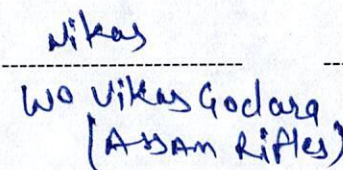 Vikas
WO Vikas Godara
(Assam Rifles)